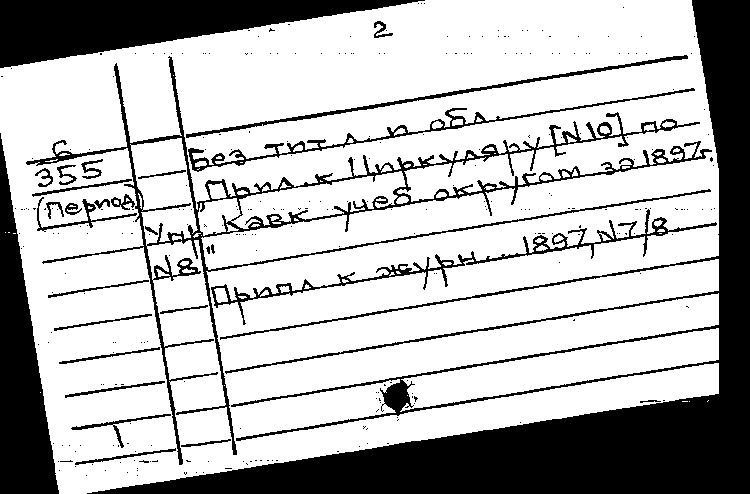 2
Без тит л. и обл.
"Прил. к Циркуляру [N10] по
Упр Кавк учеб округом за 1897г.
N8"
Припл к журн... 1897, N7/8.
6
355
(период)
1